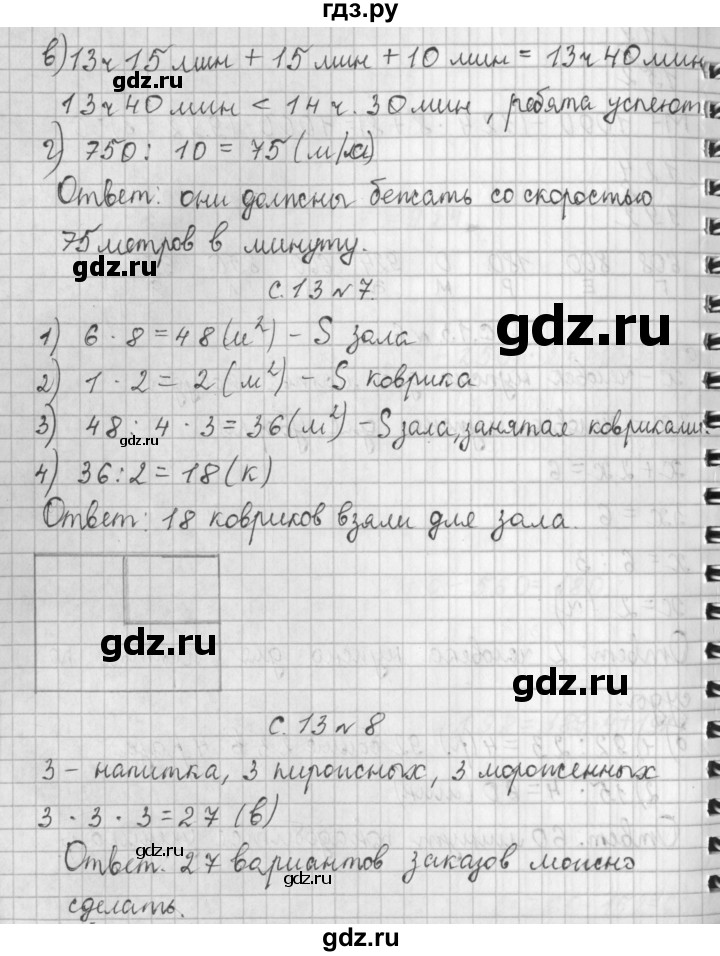 гдз.ру
в) 13ч 15 мин + 15 мин + 10 мин = 13ч 40 мин
gdz.ru
13ч 40 мин < 14 ч. 30 мин, ребята успеют
г) 750 : 10 = 75 (м/м)
Ответ: они должны бежать со скоростью
75 метров в минуту.
gdz.ru
с. 13 № 7.
gdz.ru
1) 6 · 8 = 48 (м²) – S зала
2) 1 · 2 = 2 (м²) – S коврика
3) 48 : 4 · 3 = 36 (м²) – S зала, занятая ковриками.
gdz.ru
4) 36 : 2 = 18 (к)
gdz.ru
Ответ: 18 ковриков взяли для зала.
gdz.ru
gdz.ru
с. 13 № 8
3 – напитка, 3 пироженных, 3 мороженных
3 · 3 · 3 = 27 (в)
gdz.ru
Ответ. 27 вариантов заказов можно
gdz.ru
сделать.
gdz.ru